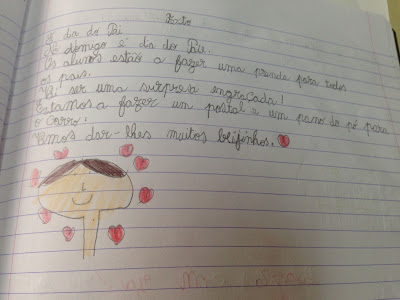 Texto
O dia do Pai
No domigo é dia do Pai.
Os alunos estão a fazer uma prenda para todos
os pais.
Vai ser uma surpresa engraçada!
Estamos a fazer um postal e um pano do pó para
o carro!
Vamos dar-lhes muitos beijinhos.